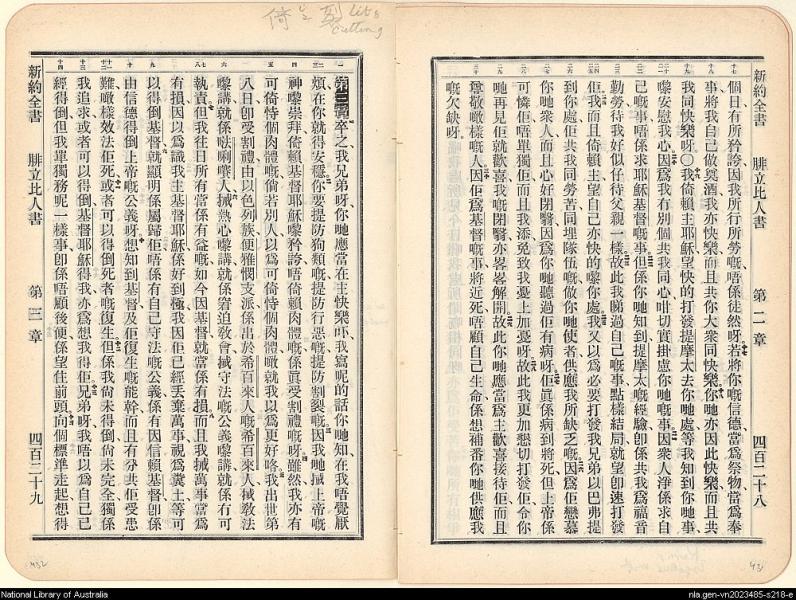 新約全書 腓立比人書 第二章 四百二十八
個日有所矜誇因我所行所勞嘅唔係徒然呀若將你嘅信德當爲祭物當爲奉
事將我自己做奠酒我亦快樂而且共你大衆同快樂你哋亦因此快樂而且共
我同快樂呀〇我倚賴主耶穌望快的打發提摩太去你哋處等我知到你哋事
嚟安慰我心因爲我有別個共我同心咁切實掛慮你哋嘅事因衆人淨係求自
己嘅事唔係求耶穌基督嘅事但係你哋知到提摩太嘅經驗卽係共我爲福音
勤勞待我好似仔待父親一樣故此我睇過自己嘅事點樣結局就望卽速打發
佢我而且倚賴主望自己亦快的嚟你處我又以爲必要打發我兄弟以巴弗提
到你處佢共我同勞苦同埋隊伍嘅做你哋使者供應我所缺乏嘅因爲佢戀慕
你哋衆人而且心好閉翳因爲你哋聽過佢有病呀佢眞係病到將死但上帝係
可憐佢唔單獨佢而且我添免致我憂上加憂呀故此我更加懇切打發佢令你
哋再見佢就歡喜我嘅閉翳亦畧畧解開故此你哋應當爲主歡喜接待佢而且
尊敬噉樣嘅人因佢爲基督嘅事將近死唔顧自己生命係想補番你哋供應我
嘅欠缺呀
第三章卒之我兄弟呀你哋應當在主快樂吖我寫呢的話你哋知在我唔覺厭
煩在你就得安穩你要提防狗類嘅提防行惡嘅提防割裂嘅因我哋掝上帝嘅
神嚟崇拜倚賴基督耶穌嚟矜誇唔倚賴肉體嘅係眞受割禮嘅呀雖然我亦有
可倚恃個肉體嘅倘若別人以爲可倚恃個肉體噉就我以爲更好咯我出世第
八日卽受割禮由以色列族便雅憫支派係出於希百來人嘅希百來人掝敎法
嚟講就係㗎唎嚷人掝熱心嚟講就係窘迫敎會掝守法嘅公義嚟講就係冇可
執責但我往日所有當係有益嘅如今因基督就當係有損而且我掝萬事當爲
有損因以爲識我主基督耶穌係好到極我因佢已經丢棄萬事視爲糞土等可
以得倒基督就顯明係屬歸佢唔係有自己守法嘅公義係有因信賴基督卽係
由信德得倒上帝嘅公義呀想知到基督及佢復生嘅能幹而且有分共佢受患
難噉樣效法佢死或者可以得倒死者嘅復生但係我尙未得倒尙未完全獨係
我追求或者可以得倒基督耶穌得我亦爲想我得佢兄弟呀我唔以爲自己已
經得倒但我單獨務呢一樣事卽係唔顧後便係望住前頭向個標準走起想得
新約全書 腓立比人書 第三章 四百二十九
National Library of Australia
nla.gen-vn2023485-s218-e